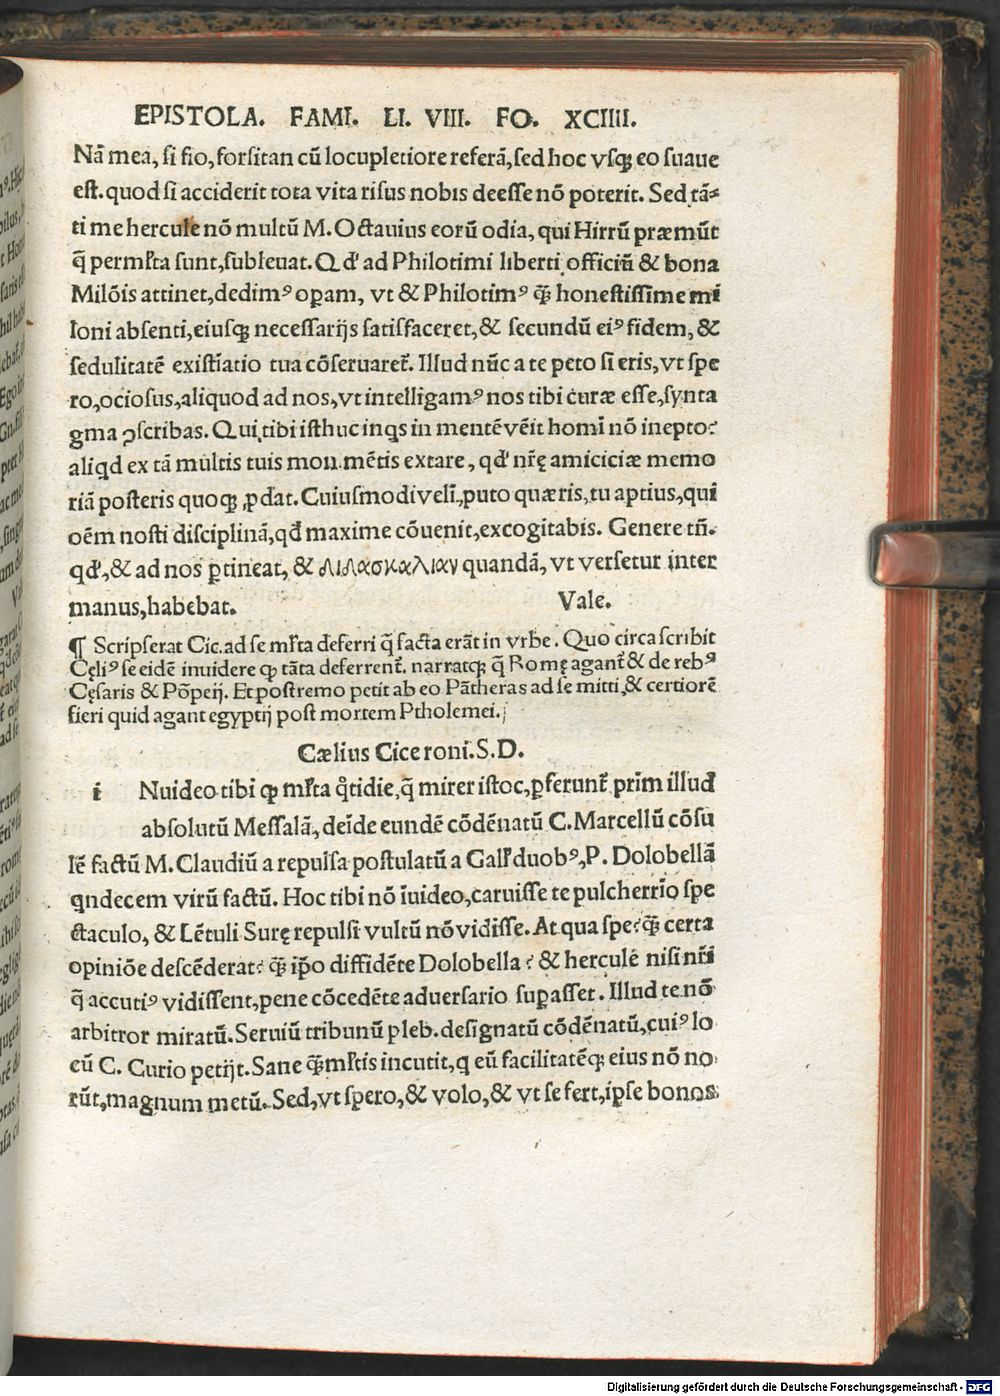 EPISTOLA. FAMI. LI. VIII. FO. XCIIII.
Nā mea, si fio, forsitan cū locupletiore referā, sed hoc vsq; eo suaue
est. quod si acciderit tota vita risus nobis deesse nō poterit. Sed tā-
ti me hercule nō multū M. Octauius eorū odia, qui Hirrū præmūt
q̄ permr̄ta sunt, subleuat. Q d' ad Philotimi liberti officiū & bona
Milōis attinet, dedimꝰ oꝑam, vt & Philotimꝰ q̄ꝫ honestissime mi
loni absenti, eiusq; necessarijs satisfaceret, & secundū eiꝰ fidem, &
sedulitatē existīatio tua cōseruaret̄. Illud nūc a te peto si eris, vt spe
ro, ociosus, aliquod ad nos, vt intelligamꝰ nos tibi curæ esse, synta
gma ꝯscribas. Qui tibi isthuc inqs in mentē vēit homī nō inepto?
aliqd ex tā multis tuis monumētis extare, qd' nr̄ę amiciciæ memo
riā posteris quoq; ꝓdat. Cuiusmodi velī, puto quæris, tu aptius, qui
oēm nosti disciplinā, qd̄ maxime cōuenit, excogitabis. Genere tn̄.
qd', & ad nos ꝑtineat, & διδασκαλιαν quandā, vt versetur inter
manus, habebat. Vale.
¶ Scripserat Cic. ad se mr̄ta deferri q̄ facta erāt in vrbe. Quo circa scribit
Cęliꝰ se eidē inuidere ꝙ tāta deferrent̄. narratq; q̄ Romę agant̄ & de rebꝰ
Cęsaris & Pōpeij. Et postremo petit ab eo Pātheras ad se mitti, & certiorē
fieri quid agant egyptij post mortem Ptholemei.
Cælius Ciceroni. S. D.
i Nuideo tibi ꝙ mr̄ta q̄tidie, q̄ mirer istoc, ꝑferunt̄ prim̄ illud
absolutū Messalā, deīde eundē cōdēnatū C. Marcellū cōsu
lē factū M. Claudiū a repulsa postulatū a Gall' duobꝰ, P. Dolobellā
qndecem virū factū. Hoc tibi nō īuideo, caruisse te pulcherrīo spe
ctaculo, & Lētuli Surę repulsi vultū nō vidisse. At qua spe? q̄ꝫ certa
opiniōe descēderat? q̄ꝫ ip̄o diffidēte Dolobella? & herculē nisi nr̄i
q̄ accutiꝰ vidissent, pene cōcedēte aduersario suꝑasset. Illud te nō
arbitror miratū. Seruiū tribunū pleb. designatū cōdēnatū, cuiꝰ lo
cū C. Curio petijt. Sane q̄ꝫ mr̄tis incutit, q eū facilitatēq; eius nō no
rūt, magnum metū. Sed, vt spero, & volo, & vt se fert, ipse bonos
Digitalisierung gefördert durch die Deutsche Forschungsgemeinschaft - DFG